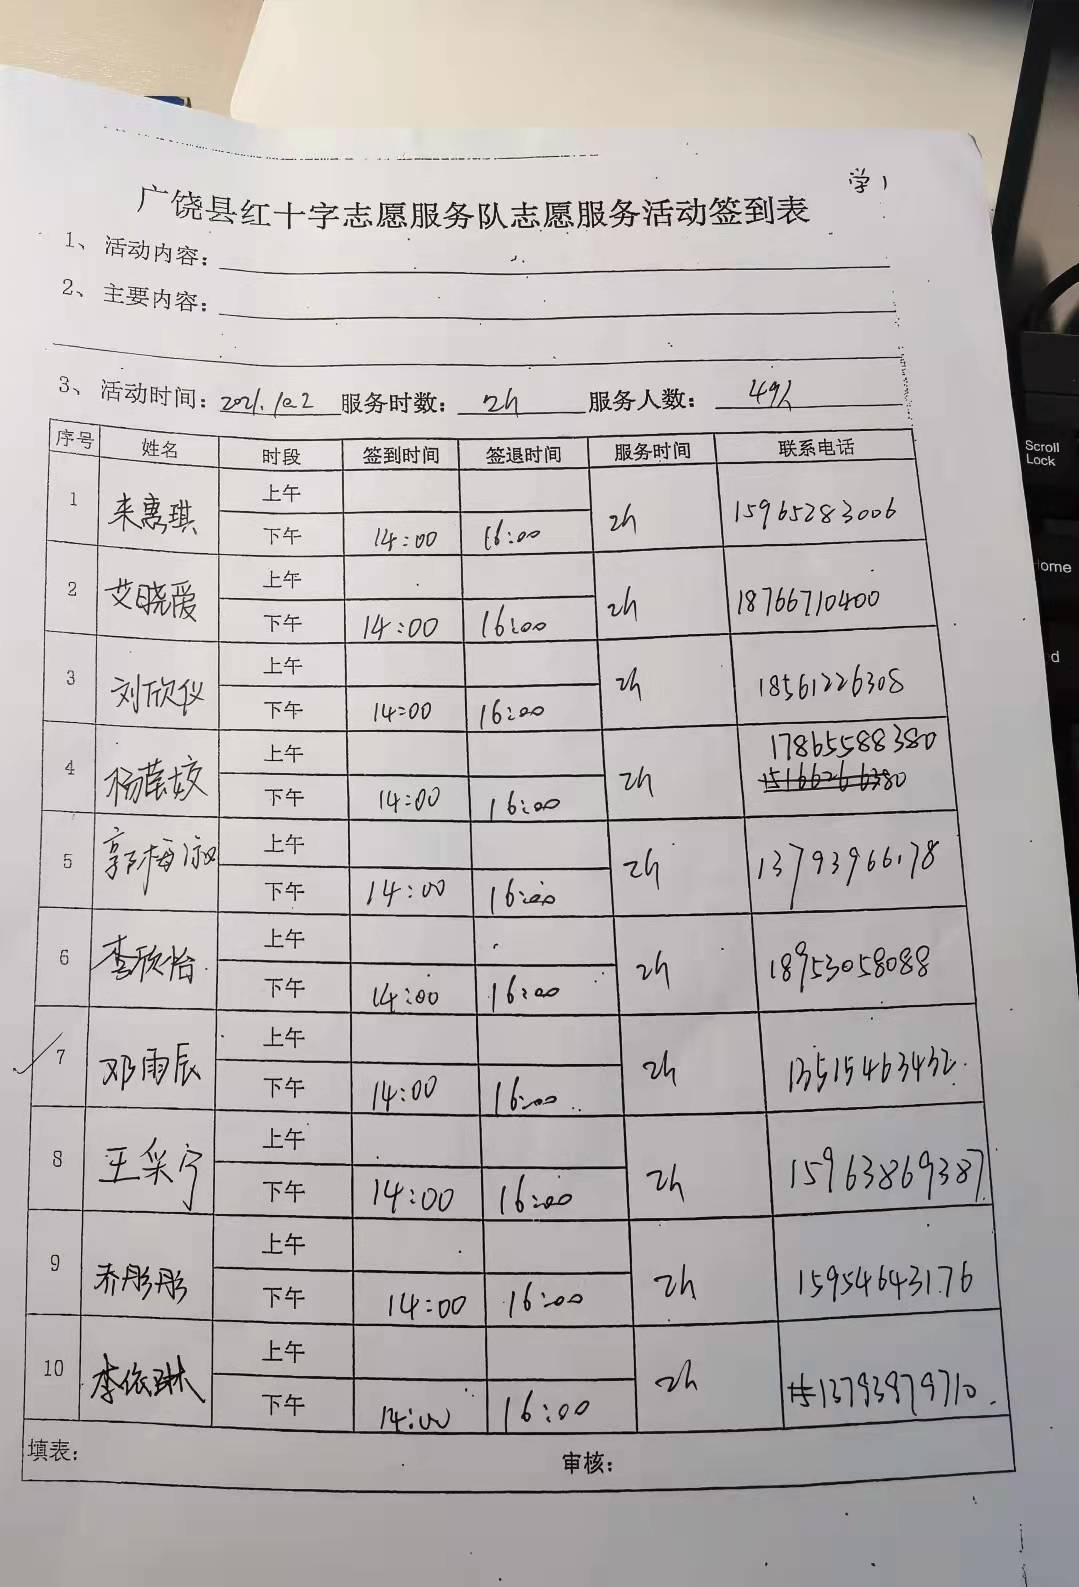 学1
广饶县红十字志愿服务队志愿服务活动签到表
1、活动内容：
2、主要内容：
3、活动时间：2021.10.2 服务时数：2h 服务人数：49人
序号 姓名 时段 签到时间 签退时间 服务时间 联系电话
1 来惠琪 上午 2h 15965283006
下午 14:00 16:00
2 艾晓爱 上午 2h 18766710400
下午 14:00 16:00
3 刘欣仪 上午 2h 18561226308
下午 14:00 16:00
4 杨莹姣 上午 2h 17865588380
下午 14:00 16:00
5 郭梅淑 上午 2h 13793966178
下午 14:00 16:00
6 李欣怡 上午 2h 18953058088
下午 14:00 16:00
7 邓雨辰 上午 2h 13515463432
下午 14:00 16:00
8 王采宁 上午 2h 15963869387
下午 14:00 16:00
9 乔彤彤 上午 2h 15954643176
下午 14:00 16:00
10 李依琳 上午 2h 13793979710
下午 14:00 16:00
填表： 审核：
Scroll
Lock
Home